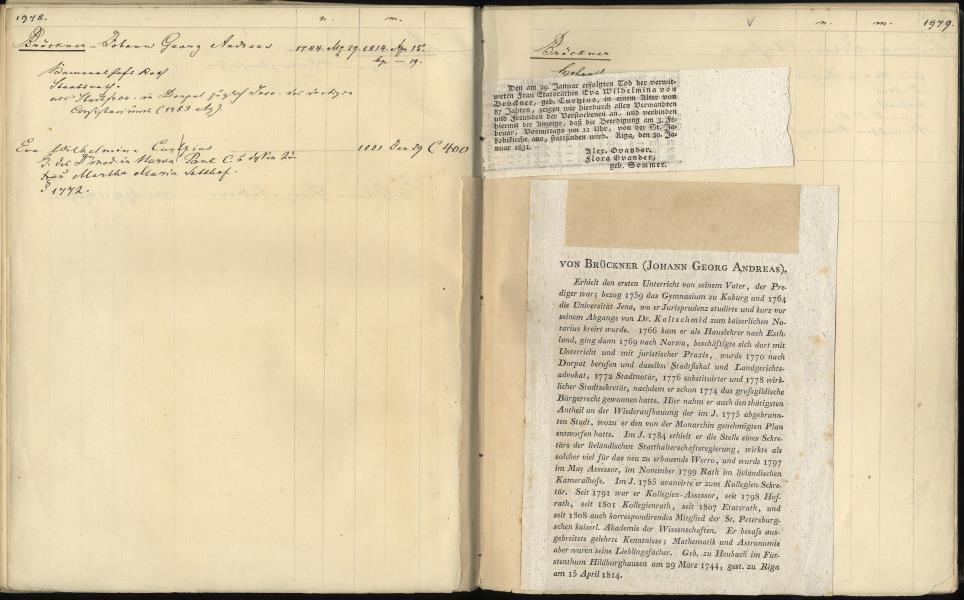 1978.
n.
m.
Brückner – Johann Georg Andreas 1744. Mz. 29. 1814. Apr. 15.
Staatsrath.
Consistoriums (1783
Eva Wilhelmina Curtzius 1831 Jan 29 C 400
Martha Maria
1772.
n.
m.
1979.
Brückner
Den am 29. Januar erfolgten Tod der verwit-
weten Frau Etatsräthin Eva Wilhelmina von
Brückner, geb. Curtzius, in einem Alter von
87 Jahren, zeigen wir hierdurch allen Verwandten
und Freunden der Verstorbenen an, und verbinden
hiermit die Anzeige, daß die Beerdigung am 3. Fe-
bruar, Vormittags um 11 Uhr, von der St. Ja-
kobikirche aus, stattfinden wird. Riga, den 30. Ja-
nuar 1831.
Alex. Ovander.
Flora Ovander,
geb. Sommer.
VON BRÜCKNER (JOHANN GEORG ANDREAS).
Erhielt den ersten Unterricht von seinem Vater, der Pre-
diger war; bezog 1759 das Gymnasium zu Koburg und 1764
die Universität Jena, wo er Jurisprudenz studirte und kurz vor
seinem Abgange von Dr. Kaltschmid zum kaiserlichen No-
tarius kreirt wurde. 1766 kam er als Hauslehrer nach Esth-
land, ging dann 1769 nach Narwa, beschäftigte sich dort mit
Unterricht und mit juristischer Praxis, wurde 1770 nach
Dorpat berufen und daselbst Stadtfiskal und Landgerichts-
advokat, 1772 Stadtnotär, 1776 substituirter und 1778 wirk-
licher Stadtsekretär, nachdem er schon 1774 das grofsgildische
Bürgerrecht gewonnen hatte. Hier nahm er auch den thätigsten
Antheil an der Wiederaufbauung der im J. 1775 abgebrann-
ten Stadt, wozu er den von der Monarchin genehmigten Plan
entworfen hatte. Im J. 1784 erhielt er die Stelle eines Sekre-
tärs der livländischen Statthalterschaftsregierung, wirkte als
solcher viel für das neu zu erbauende Werro, und wurde 1797
im May Assessor, im November 1799 Rath im livländischen
Kameralhofe. Im J. 1785 avancirte er zum Kollegien-Sekre-
tär. Seit 1791 war er Kollegien-Assessor, seit 1798 Hof-
rath, seit 1801 Kollegienrath, seit 1807 Etatsrath, und
seit 1808 auch korrespondirendes Mitglied der St. Petersburg-
schen kaiserl. Akademie der Wissenschaften. Er besafs aus-
gebreitete gelehrte Kenntnisse; Mathematik und Astronomie
aber waren seine Lieblingsfächer. Geb. zu Heubach im Für-
stenthum Hildburghausen am 29 März 1744, gest. zu Riga
am 15 April 1814.